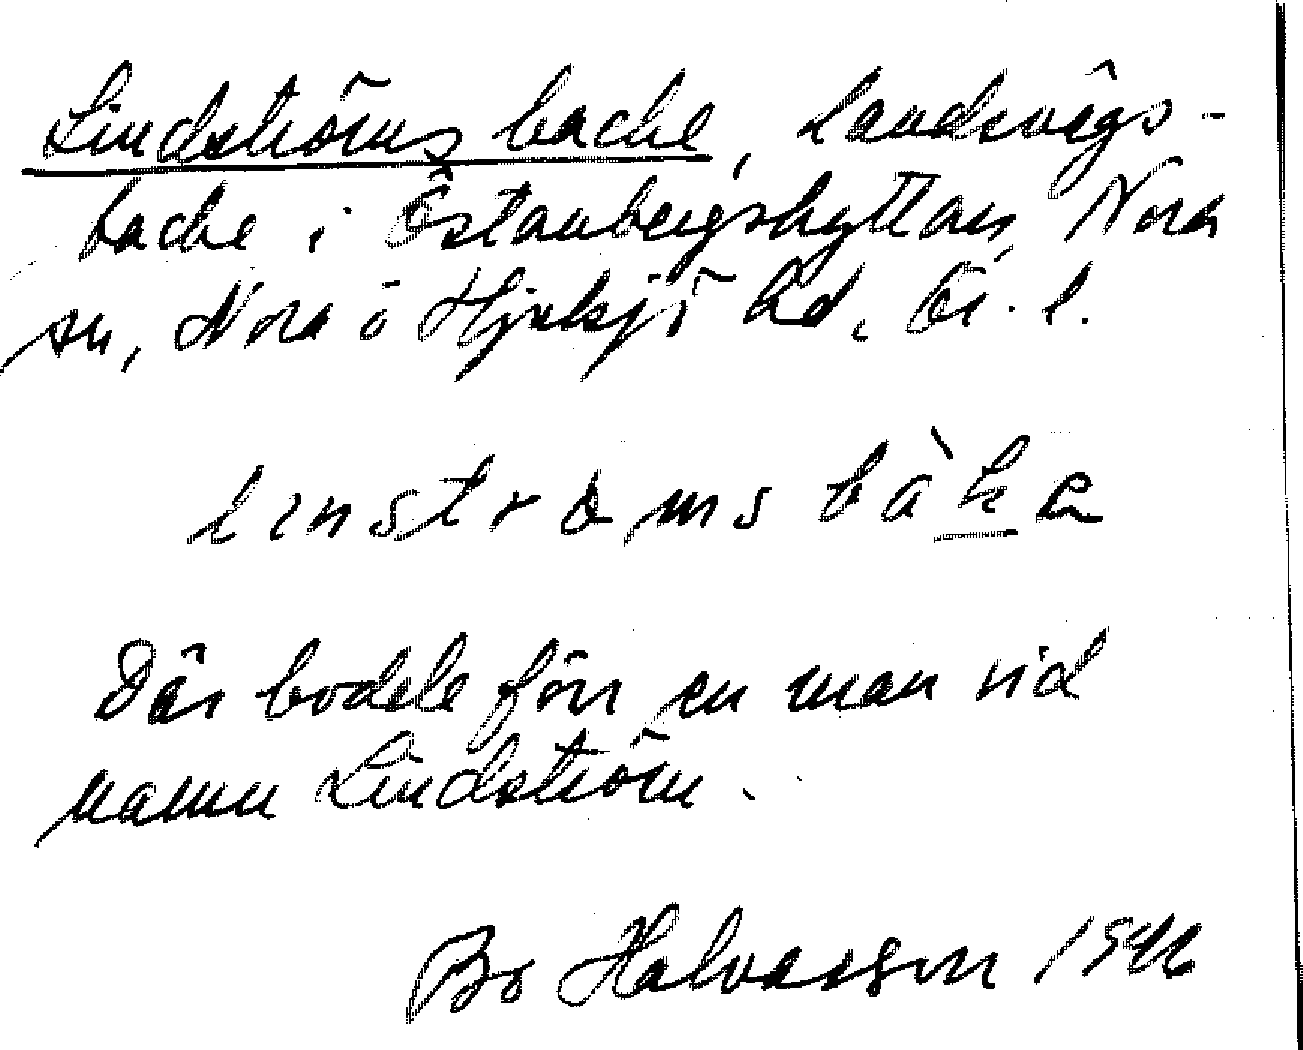 Lindströms backe, landsvägs-
backe i Östanbergshyttan, Nora
sn, Nora o Hjulsjö hd, Ör. l.
linstrȯms bàkɐ
Där bodde förr en man vid
namn Lindström.
Bo Halvarsson 1946